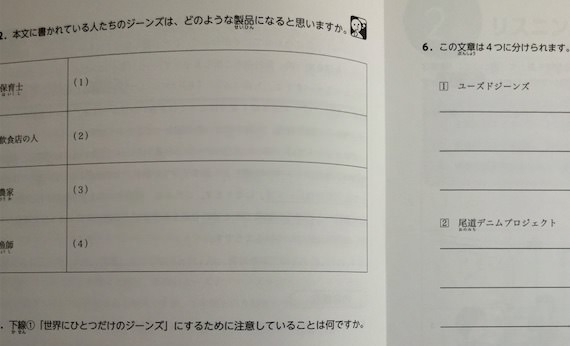 2．本文に書かれている人たちのジーンズは、どのような製品になると思いますか。
せいひん
保育士
ほ い く し
（1）
飲食店の人
（2）
農家
のう か
（3）
漁師
りょ う し
（4）
．下線①「世界にひとつだけのジーンズ」にするために注意していることは何ですか。
か せん
6．この文章は４つに分けられます。
ぶんしょう
1 ユーズドジーンズ
2 尾道デニムプロジェクト
おのみち